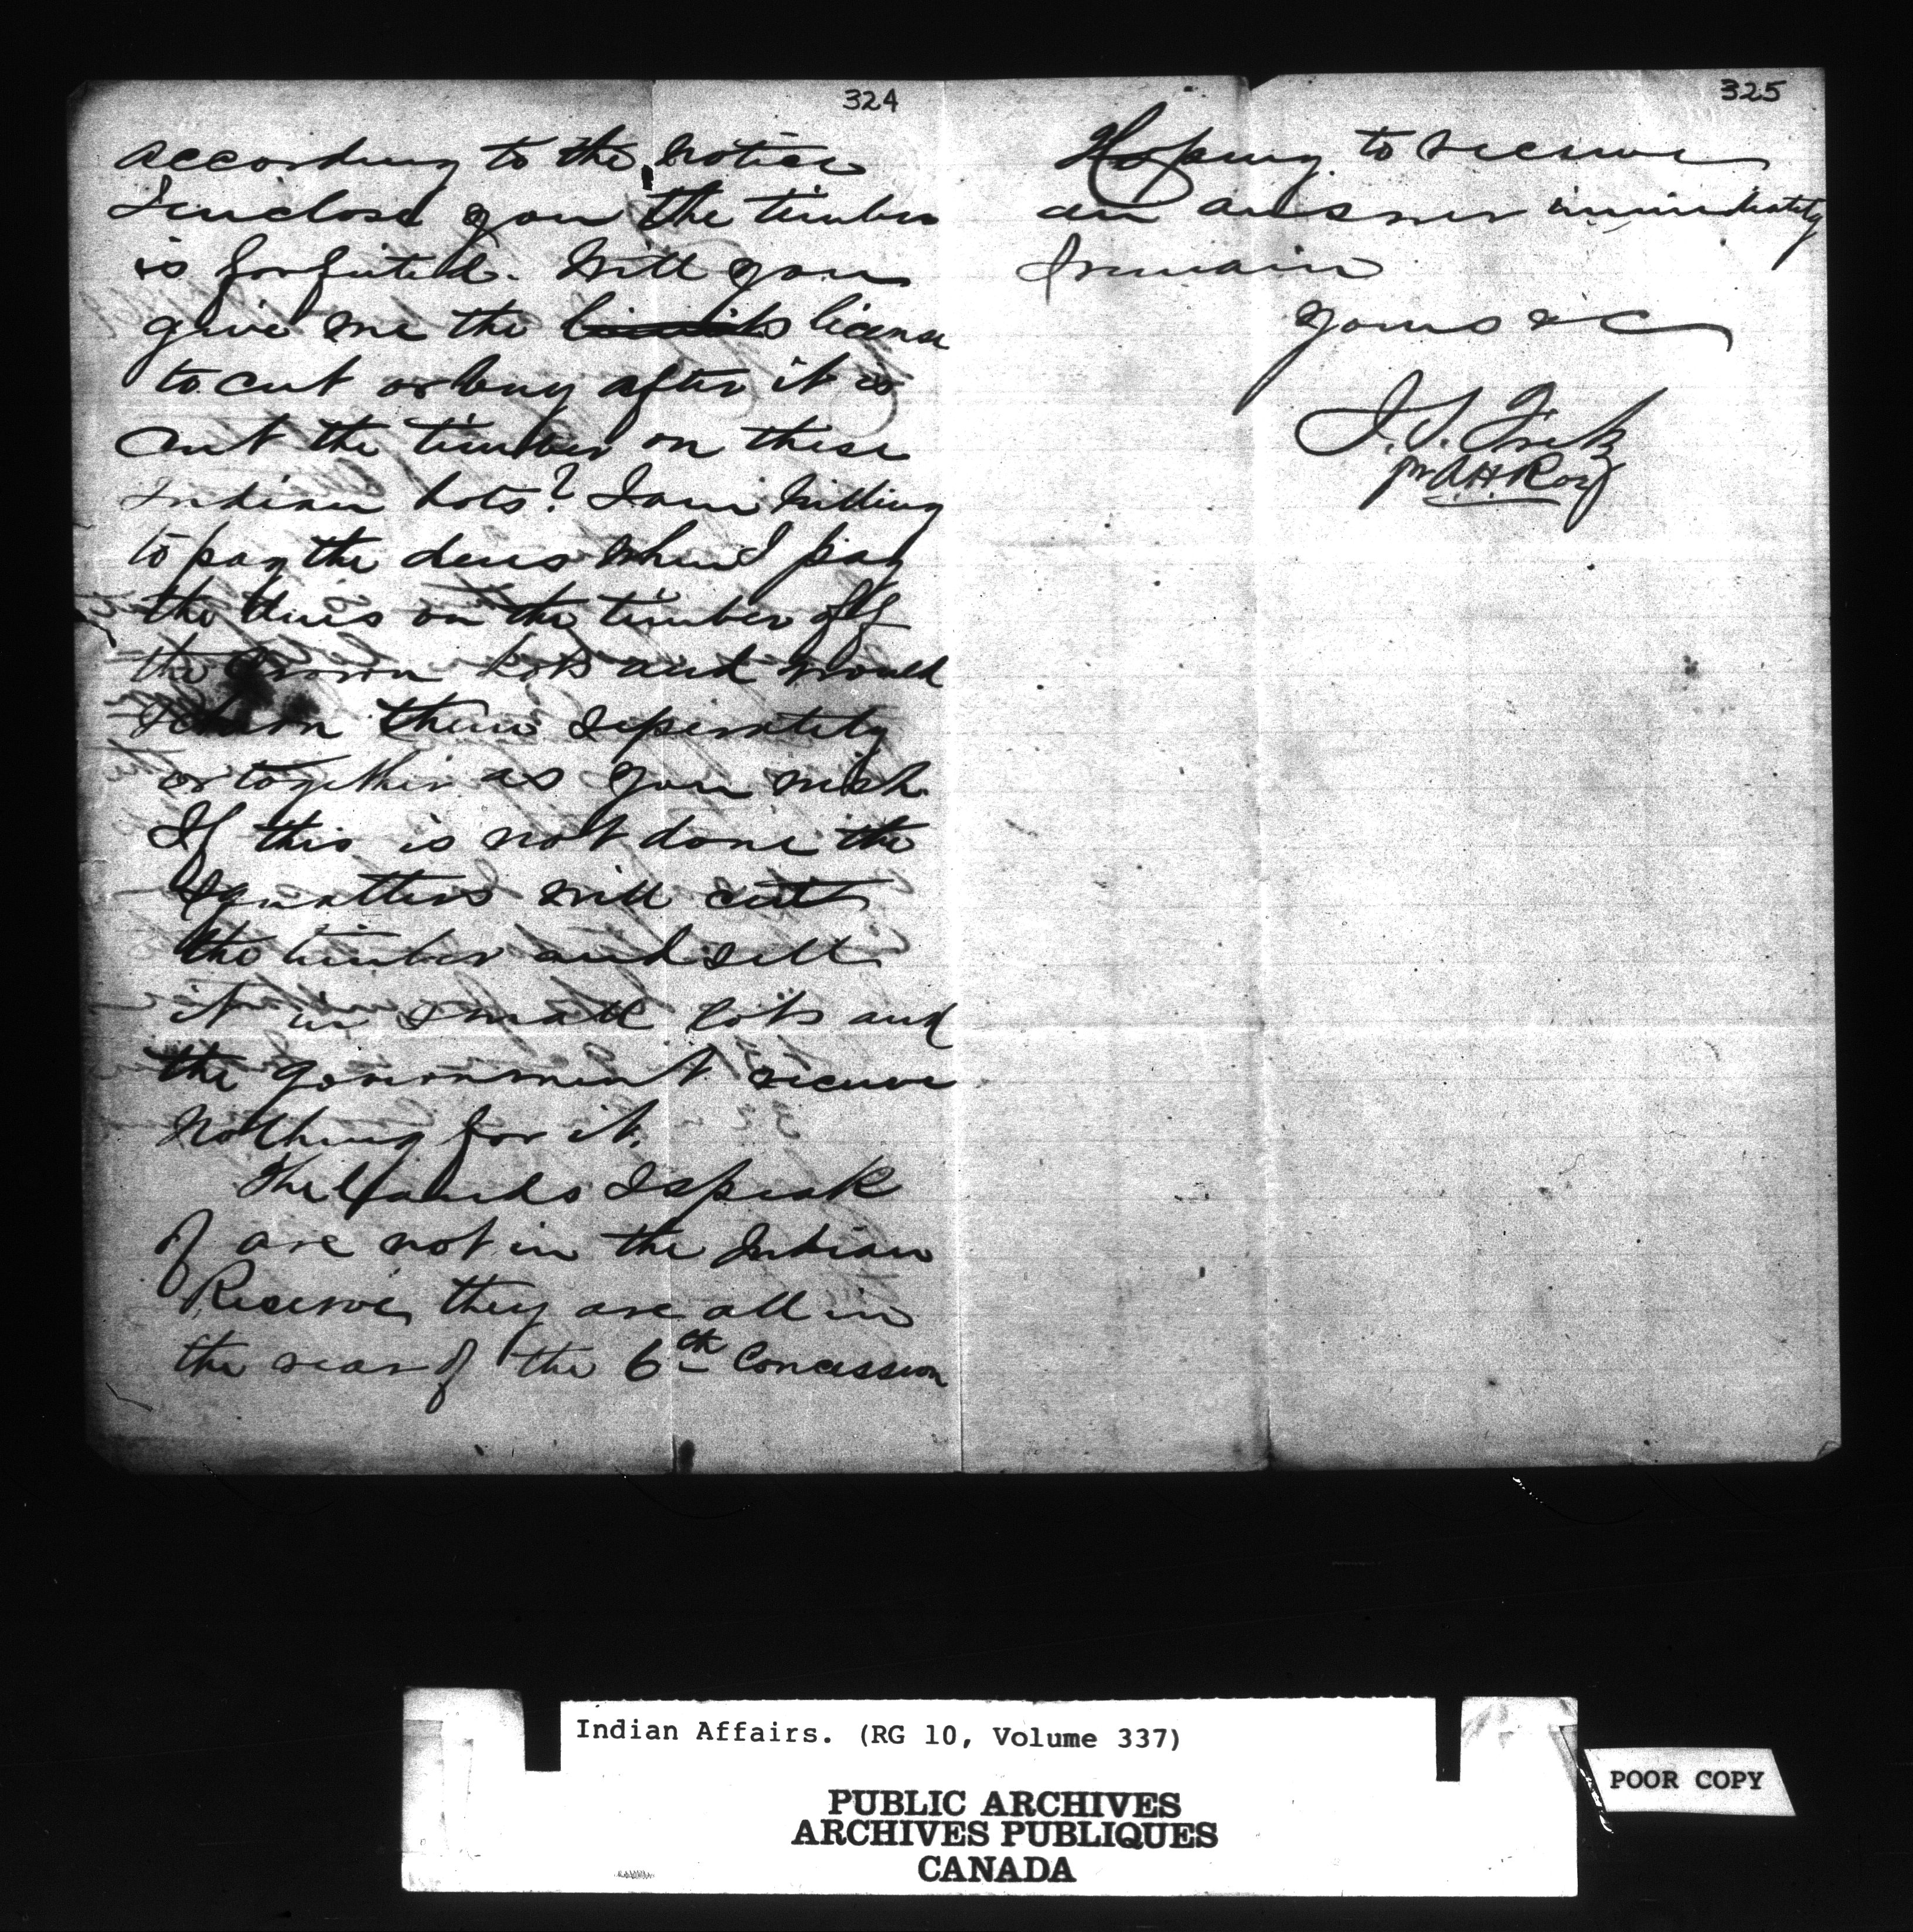 324
according to the notice
I enclose you the timber
is forfeited. Will you
give me the limits license
to cut or buy after it is
cut the timber on these
Indian Lots? I am willing
to pay the dues when I pay
the dues on the timber off
the Crown Lots and would
return them seperately
or together as you wish
If this is not done the
Squatters will cut
the timber and sell
it in small lots and
the government receive
nothing for it.
The lands I speak
of are not in the Indian
Reserve, they are all in
the rear of the 6th Concession
325
Hoping to receive
an answer immediately
I remain
yours &c
J. S.
pr A H Roy
Indian Affairs. (RG 10, Volume 337)
PUBLIC ARCHIVES
ARCHIVES PUBLIQUES
CANADA
POOR COPY